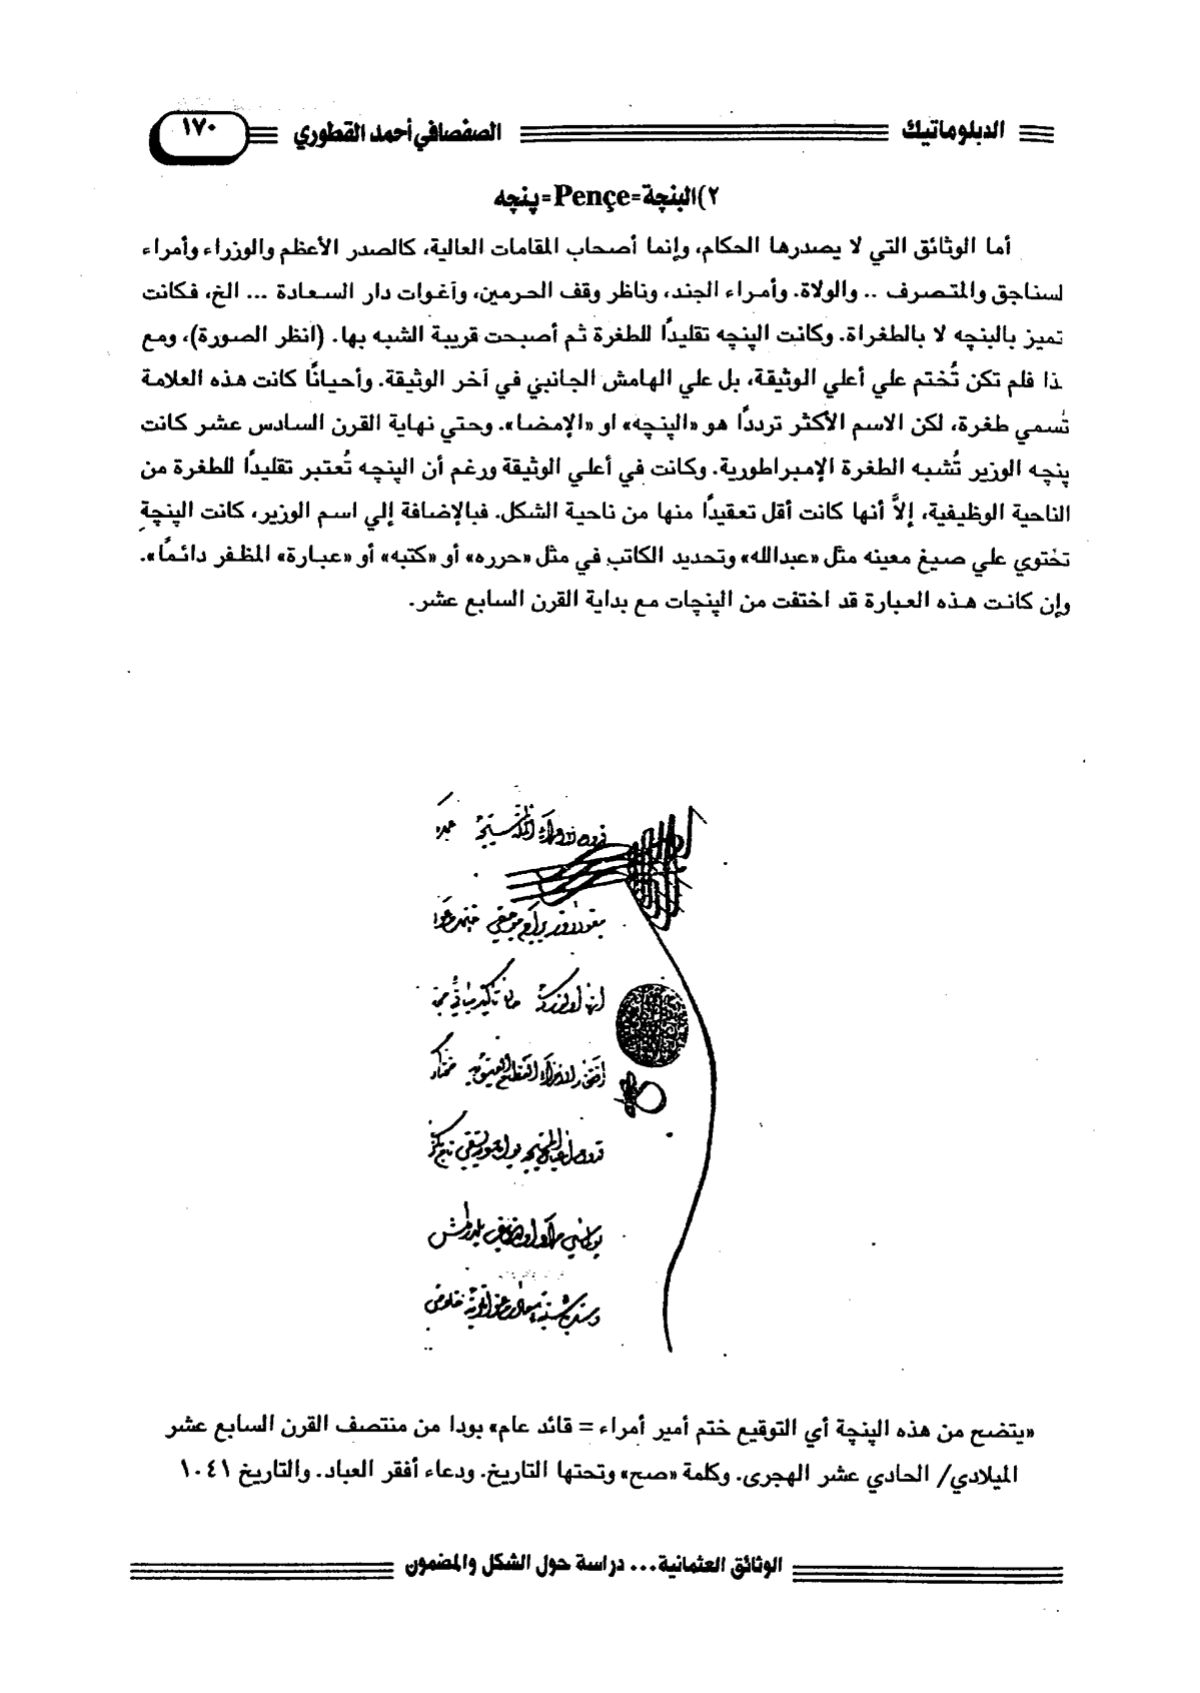 الدبلوماتيك
الصفصافي أحمد القطوري
١٧٠
٢)البنچة=Pençe=پنچه
أما الوثائق التي لا يصدرها الحكام، وإنما أصحاب المقامات العالية، كالصدر الأعظم والوزراء وأمراء
لسناجق والمتصرف .. والولاة. وأمراء الجند، وناظر وقف الحرمين، وآغوات دار السعادة ... الخ، فكانت
تميز بالبنچه لا بالطغراة. وكانت الپنچه تقليدًا للطغرة ثم أصبحت قريبة الشبه بها. (انظر الصورة)، ومع
ذا فلم تكن تُختم علي أعلي الوثيقة، بل علي الهامش الجانبي في آخر الوثيقة. وأحيانًا كانت هذه العلامة
تُسمي طغرة، لكن الاسم الأكثر ترددًا هو «الپنچه» او «الإمضا». وحتي نهاية القرن السادس عشر كانت
پنچه الوزير تُشبه الطغرة الإمبراطورية. وكانت في أعلي الوثيقة ورغم أن الپنچه تُعتبر تقليدًا للطغرة من
الناحية الوظيفية، إلاَّ أنها كانت أقل تعقيدًا منها من ناحية الشكل. فبالإضافة إلي اسم الوزير، كانت الپنچة
تحتوي علي صيغ معينه مثل «عبدالله» وتحديد الكاتب في مثل «حرره» أو «كتبه» أو «عبارة» المظفر دائمًا».
وإن كانت هذه العبارة قد اختفت من الپنچات مع بداية القرن السابع عشر.
«يتضح من هذه الپنچة أي التوقيع ختم أمير أمراء = قائد عام» بودا من منتصف القرن السابع عشر
الميلادي/ الحادي عشر الهجرى. وكلمة «صح» وتحتها التاريخ. ودعاء أفقر العباد. والتاريخ ١٠٤١
الوثائق العثمانية... دراسة حول الشكل والمضمون